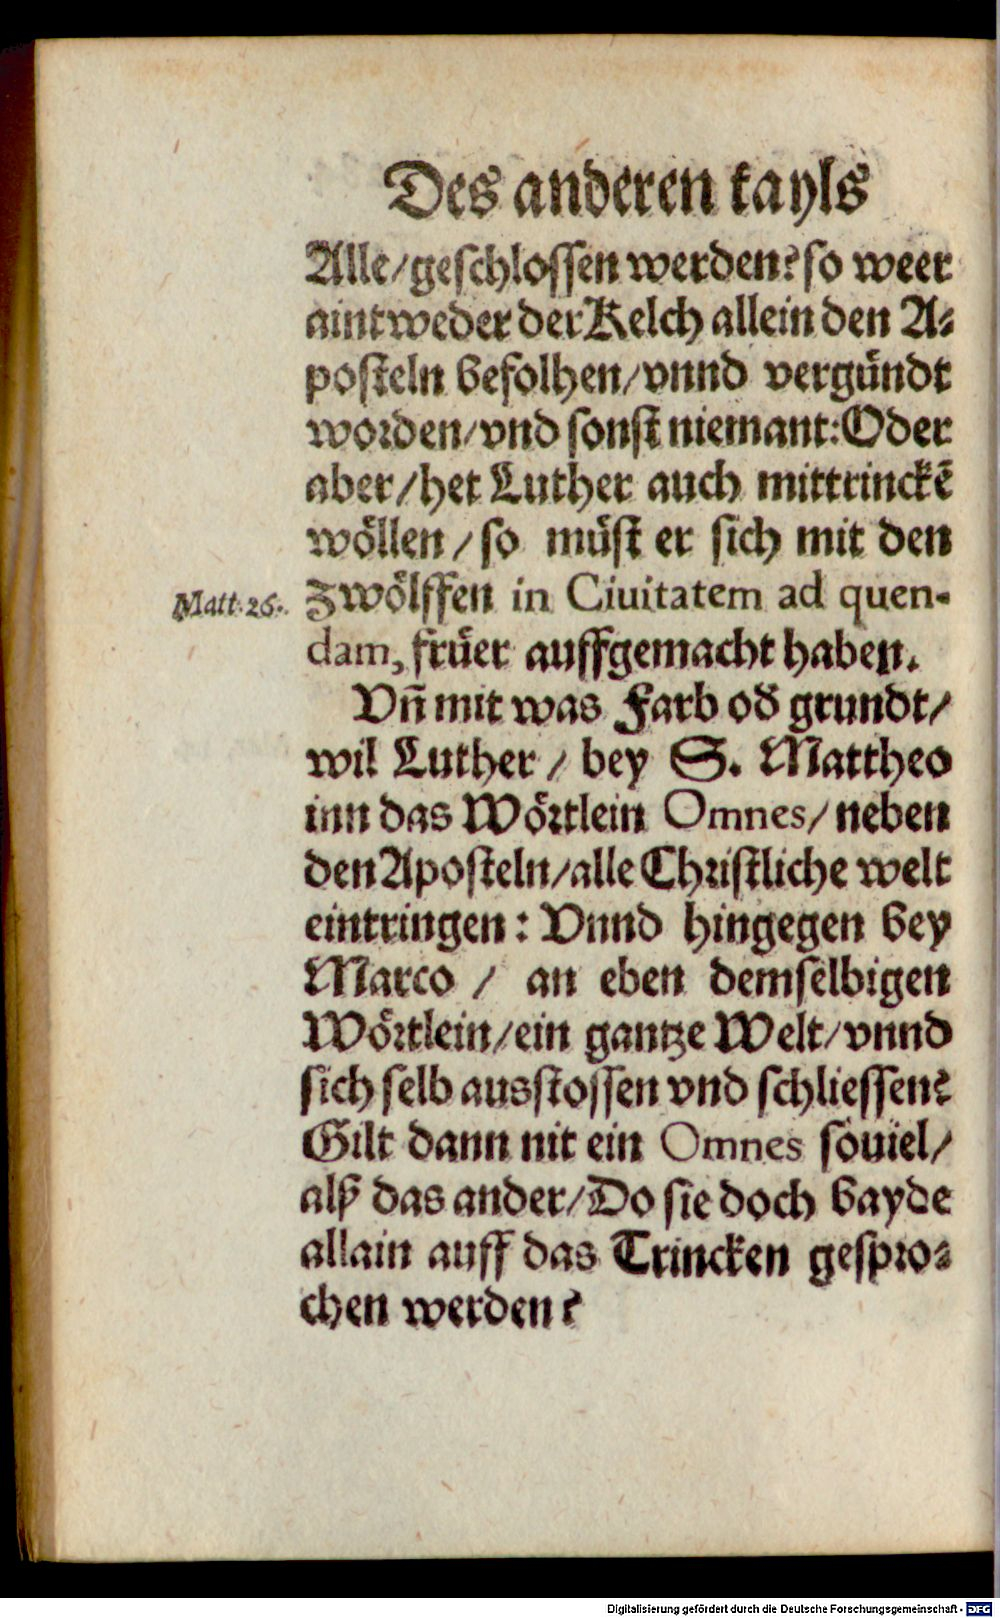 Des anderen tayls
Alle/geschlossen werden? so weer
aintweder der Kelch allein den A⸗
posteln befolhen/vnnd vergündt
worden/vnd sonst niemant: Oder
aber/het Luther auch mittrinckē
wöllen/so müst er sich mit den
Matt. 26. zwölffen in Ciuitatem ad quen-
dam, früer auffgemacht haben.
Vñ mit was Farb oď grundt/
wil Luther/bey S. Mattheo
inn das Wörtlein Omnes/neben
den Aposteln/alle Christliche welt
eintringen: Vnnd hingegen bey
Marco/an eben demselbigen
Wörtlein/ein gantze Welt/vnnd
sich selb ausstossen vnd schliessen?
Gilt dann nit ein Omnes souiel/
alß das ander/Do sie doch bayde
allain auff das Trincken gespro⸗
chen werden?
Digitalisierung gefördert durch die Deutsche Forschungsgemeinschaft - DFG